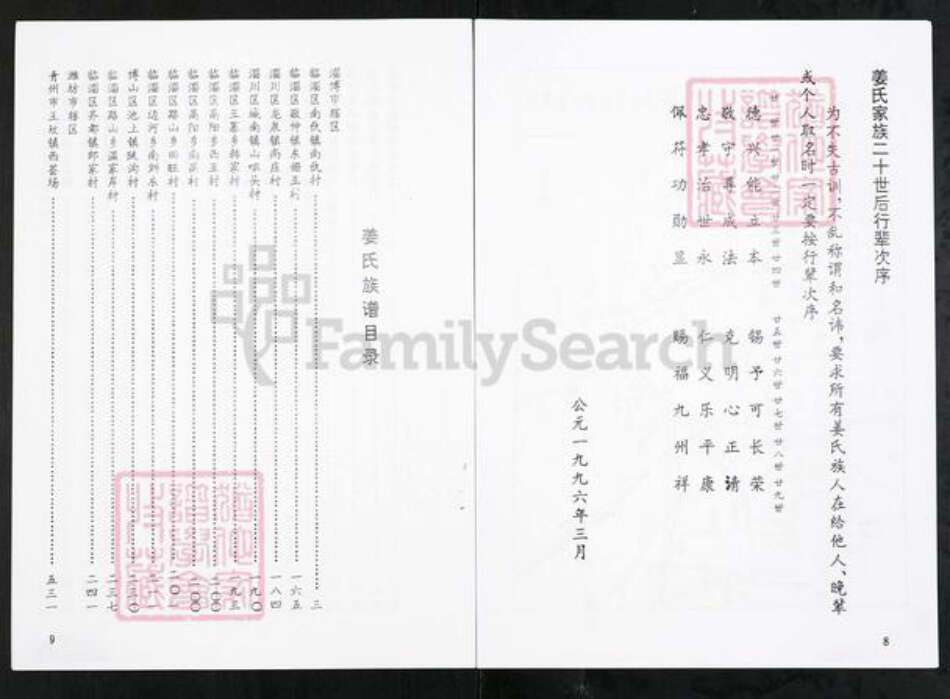 姜氏家族二十世后行辈次序
为不失古训，不乱称谓和名讳，要求所有姜氏族人在给他人、晚辈
或个人取名时一定要按行辈次序
廿四世
廿五世 廿六世 廿七世 廿八世 廿九世
德兴能立本 锡予可长荣
敬守尊成法 克明心正清
忠孝治世永 仁义乐平康
佩符功勋显 赐福九州祥
公元一九九六年三月
8
姜氏族谱目录
淄博市辖区
临淄区南仇镇南仇村 三
临淄区敬仲镇东姬王村 一六五
淄川区龙泉镇尚庄村 一八四
淄川区城南镇山头村 一九〇
临淄区三寨乡韩家村 一九三
临淄区高阳乡西王村 二〇〇
临淄区高阳乡南高村 二〇〇
临淄区路山乡田旺村 二〇一
临淄区边河乡南刘东村
博山区池上镇陡沟村
临淄区路山乡温家岸村 二三七
临淄区齐都镇郎家村 二四一
潍坊市辖区
青州市王坟镇西茔场 五三一
9
FamilySearch